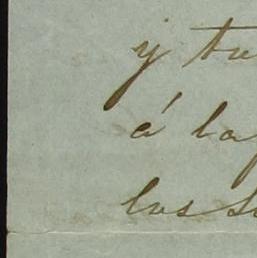 y tu
á la
los